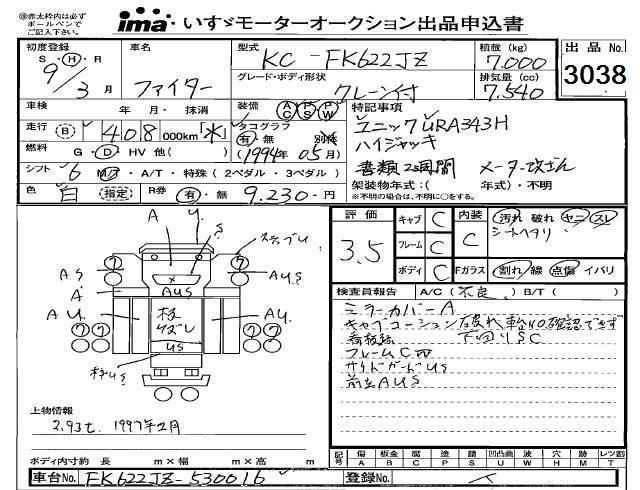 ※赤太枠内は必ず
ボールペンで
ご記入下さい。
ima いすゞモーターオークション出品申込書
初度登録 車名 型式 KC-FK622JZ 積載 (kg) 7,000 出品 No.
S・H・R 9/3月 ファイター グレード・ボディ形状 クレーン付 排気量 (cc) 7,540 3038
車検 年・月・抹消 装備 AC PS PW 特記事項
走行 B 408,000km 「水」 タコグラフ 有・無 別検 ユニックURA343H
燃料 G・D・HV 他( ) (1994年05月) ハイジャッキ
シフト 6 MT・A/T・特殊(2ペダル・3ペダル) 書類2週間 メーター改ざん
色 白 指定 R券 有・無 9,230-円 架装物年式:( 年式)・不明
※不明の場合は、不明に○をする。
評価 3.5 キャブ C 内装 C 汚れ 破れ ヤニ スレ
シートヘタリ
フレーム C
ボディ C Fガラス 割れ 線 点傷 イバリ
検査員報告 A/C(不良。) B/T( )
ミラーカバーA
キャブコーション破れ 車台NO確認できず
下回りSC
フレームC凹
サイドガードUS
前立AUS
A U. S ステップU
7 7 7 7
AS AUS AUS
A
AU. AU.
US
7 7 7 7
上物情報
2.93t. 1997年2月
ボディ内寸約 長 m×幅 m×高 m
記号 傷 板金 腐 塗 錆 凹凸曲 波 穴 跡 レツ割
A B C P S U W H M T
車台No. FK622JZ-530016 登録No.